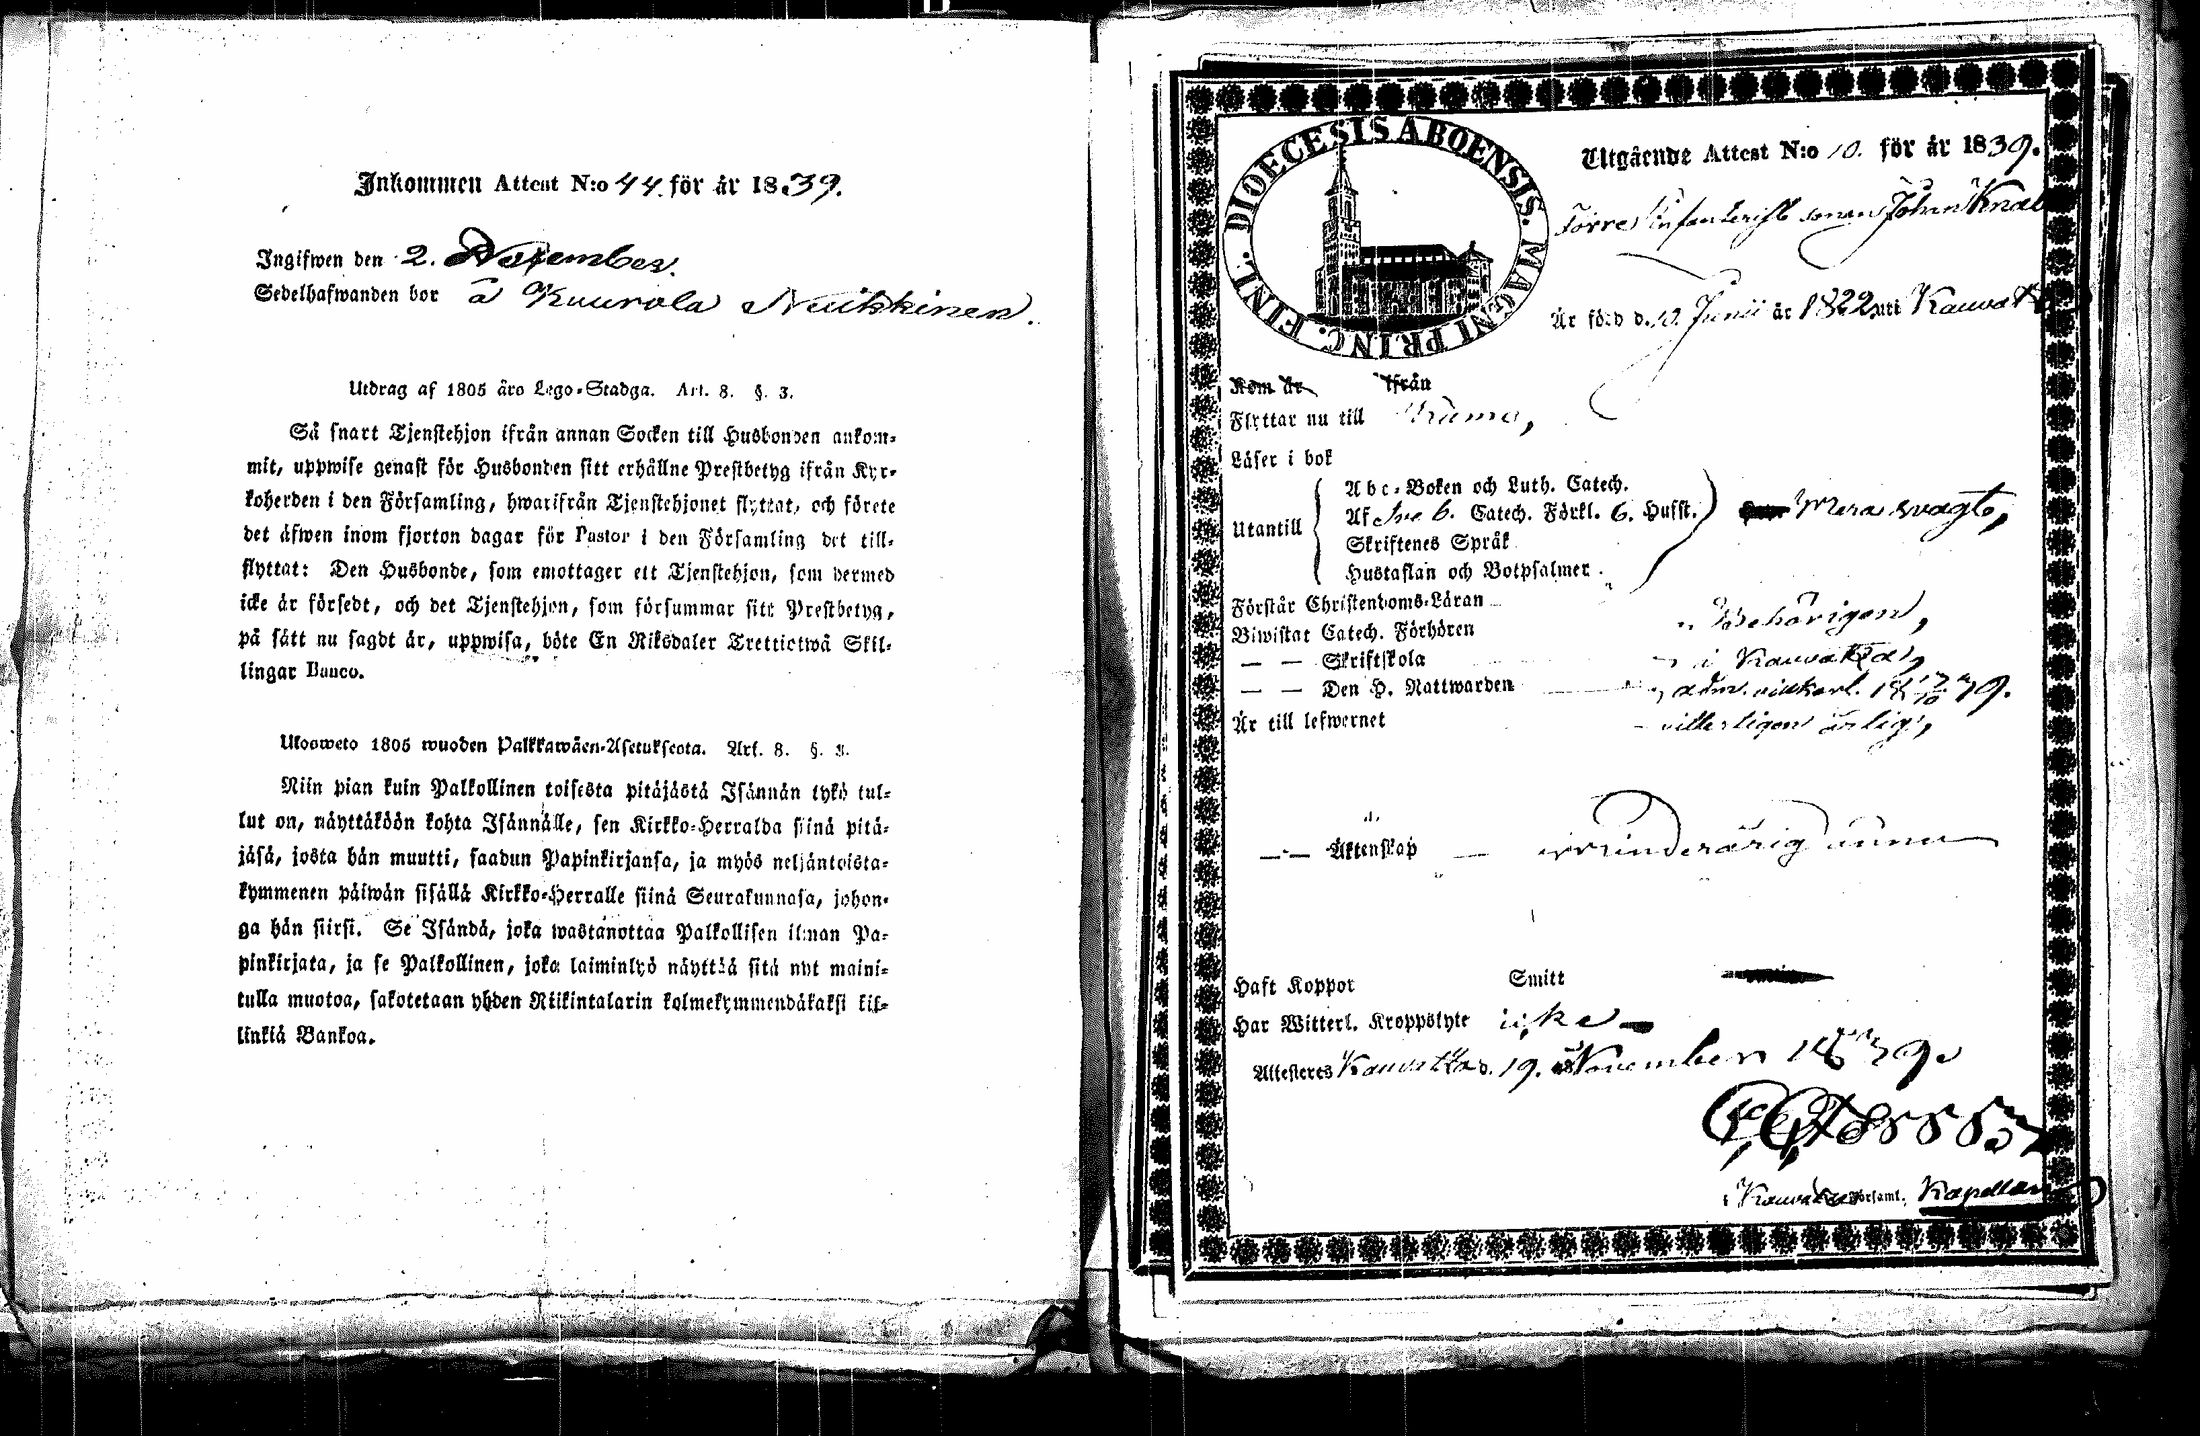 Inkommen Attest N:o 44. för år 1839.
Ingifwen den 2. December.
Sedelhafwanden bor å Kuurola Nuikkinen.
Utdrag af 1805 års Lego-Stadga. Art. 8. §. 3.
Så snart Tjenstehjon ifrån annan Socken till Husbonden ankom-
mit, uppwise genast för Husbonden sitt erhållne Prestbetyg ifrån Kyr-
koherden i den Församling, hwarifrån Tjenstehjonet flyttat, och förete
det äfwen inom fjorton dagar för Pastor i den Församling det till-
flyttat: Den Husbonde, som emottager ett Tjenstehjon, som dermed
icke är försedt, och det Tjenstehjon, som försummar sitt Prestbetyg,
på sätt nu sagdt är, uppwisa, böte En Riksdaler Trettiotwå Skil-
lingar Banco.
Ulosweto 1805 wuoden Palkkawäen-Asetuksesta. Art. 8. §. 3.
Niin pian kuin Palkollinen toisesta pitäjästä Isännän tykö tul-
lut on, näyttäköön kohta Isännälle, sen Kirkko-Herralda siinä pitä-
jäsä, josta hän muutti, saadun Papinkirjansa, ja myös neljäntoista-
kymmenen päiwän sisällä Kirkko-Herralle siinä Seurakunnasa, johon-
ga hän siirsi. Se Isändä, joka wastanottaa Palkollisen ilman Pa-
pinkirjata, ja se Palkollinen, joka laiminlyö näyttää sitä nyt maini-
tulla muotoa, sakotetaan yhden Riikintalarin kolmekymmendäkaksi kil-
linkiä Bankoa.
DIOECESIS ABOENSIS. MAGNI PRINC. FINL.
Utgående Attest N:o 10. för år 1839.
Förre Infanterist sonen Johan
Är född d. 10. Junii år 1822 uti
Kom år ifrån
Flyttar nu till
Läser i bok
Abc-Boken och Luth. Catech.
Utantill Af Sve 6. Catech. Förkl. 6. Husst. swagt,
Skriftenes Språk
Hustaflan och Botpsalmer
Förstår Christendoms-Läran
Biwistat Catech. Förhören Behörigen,
— — Skriftskola i Kauvatsa,
— — Den H. Nattwarden
Är till lefwernet witterligen ärlig,
— — Äktenskap — minderårig ännu
Haft Koppor Smitt
Har Witterl. Kroppslyte icke
Attesteras Kauvatsa d. 19. November 1839.
i Kauvatsa Församl. Kapellan